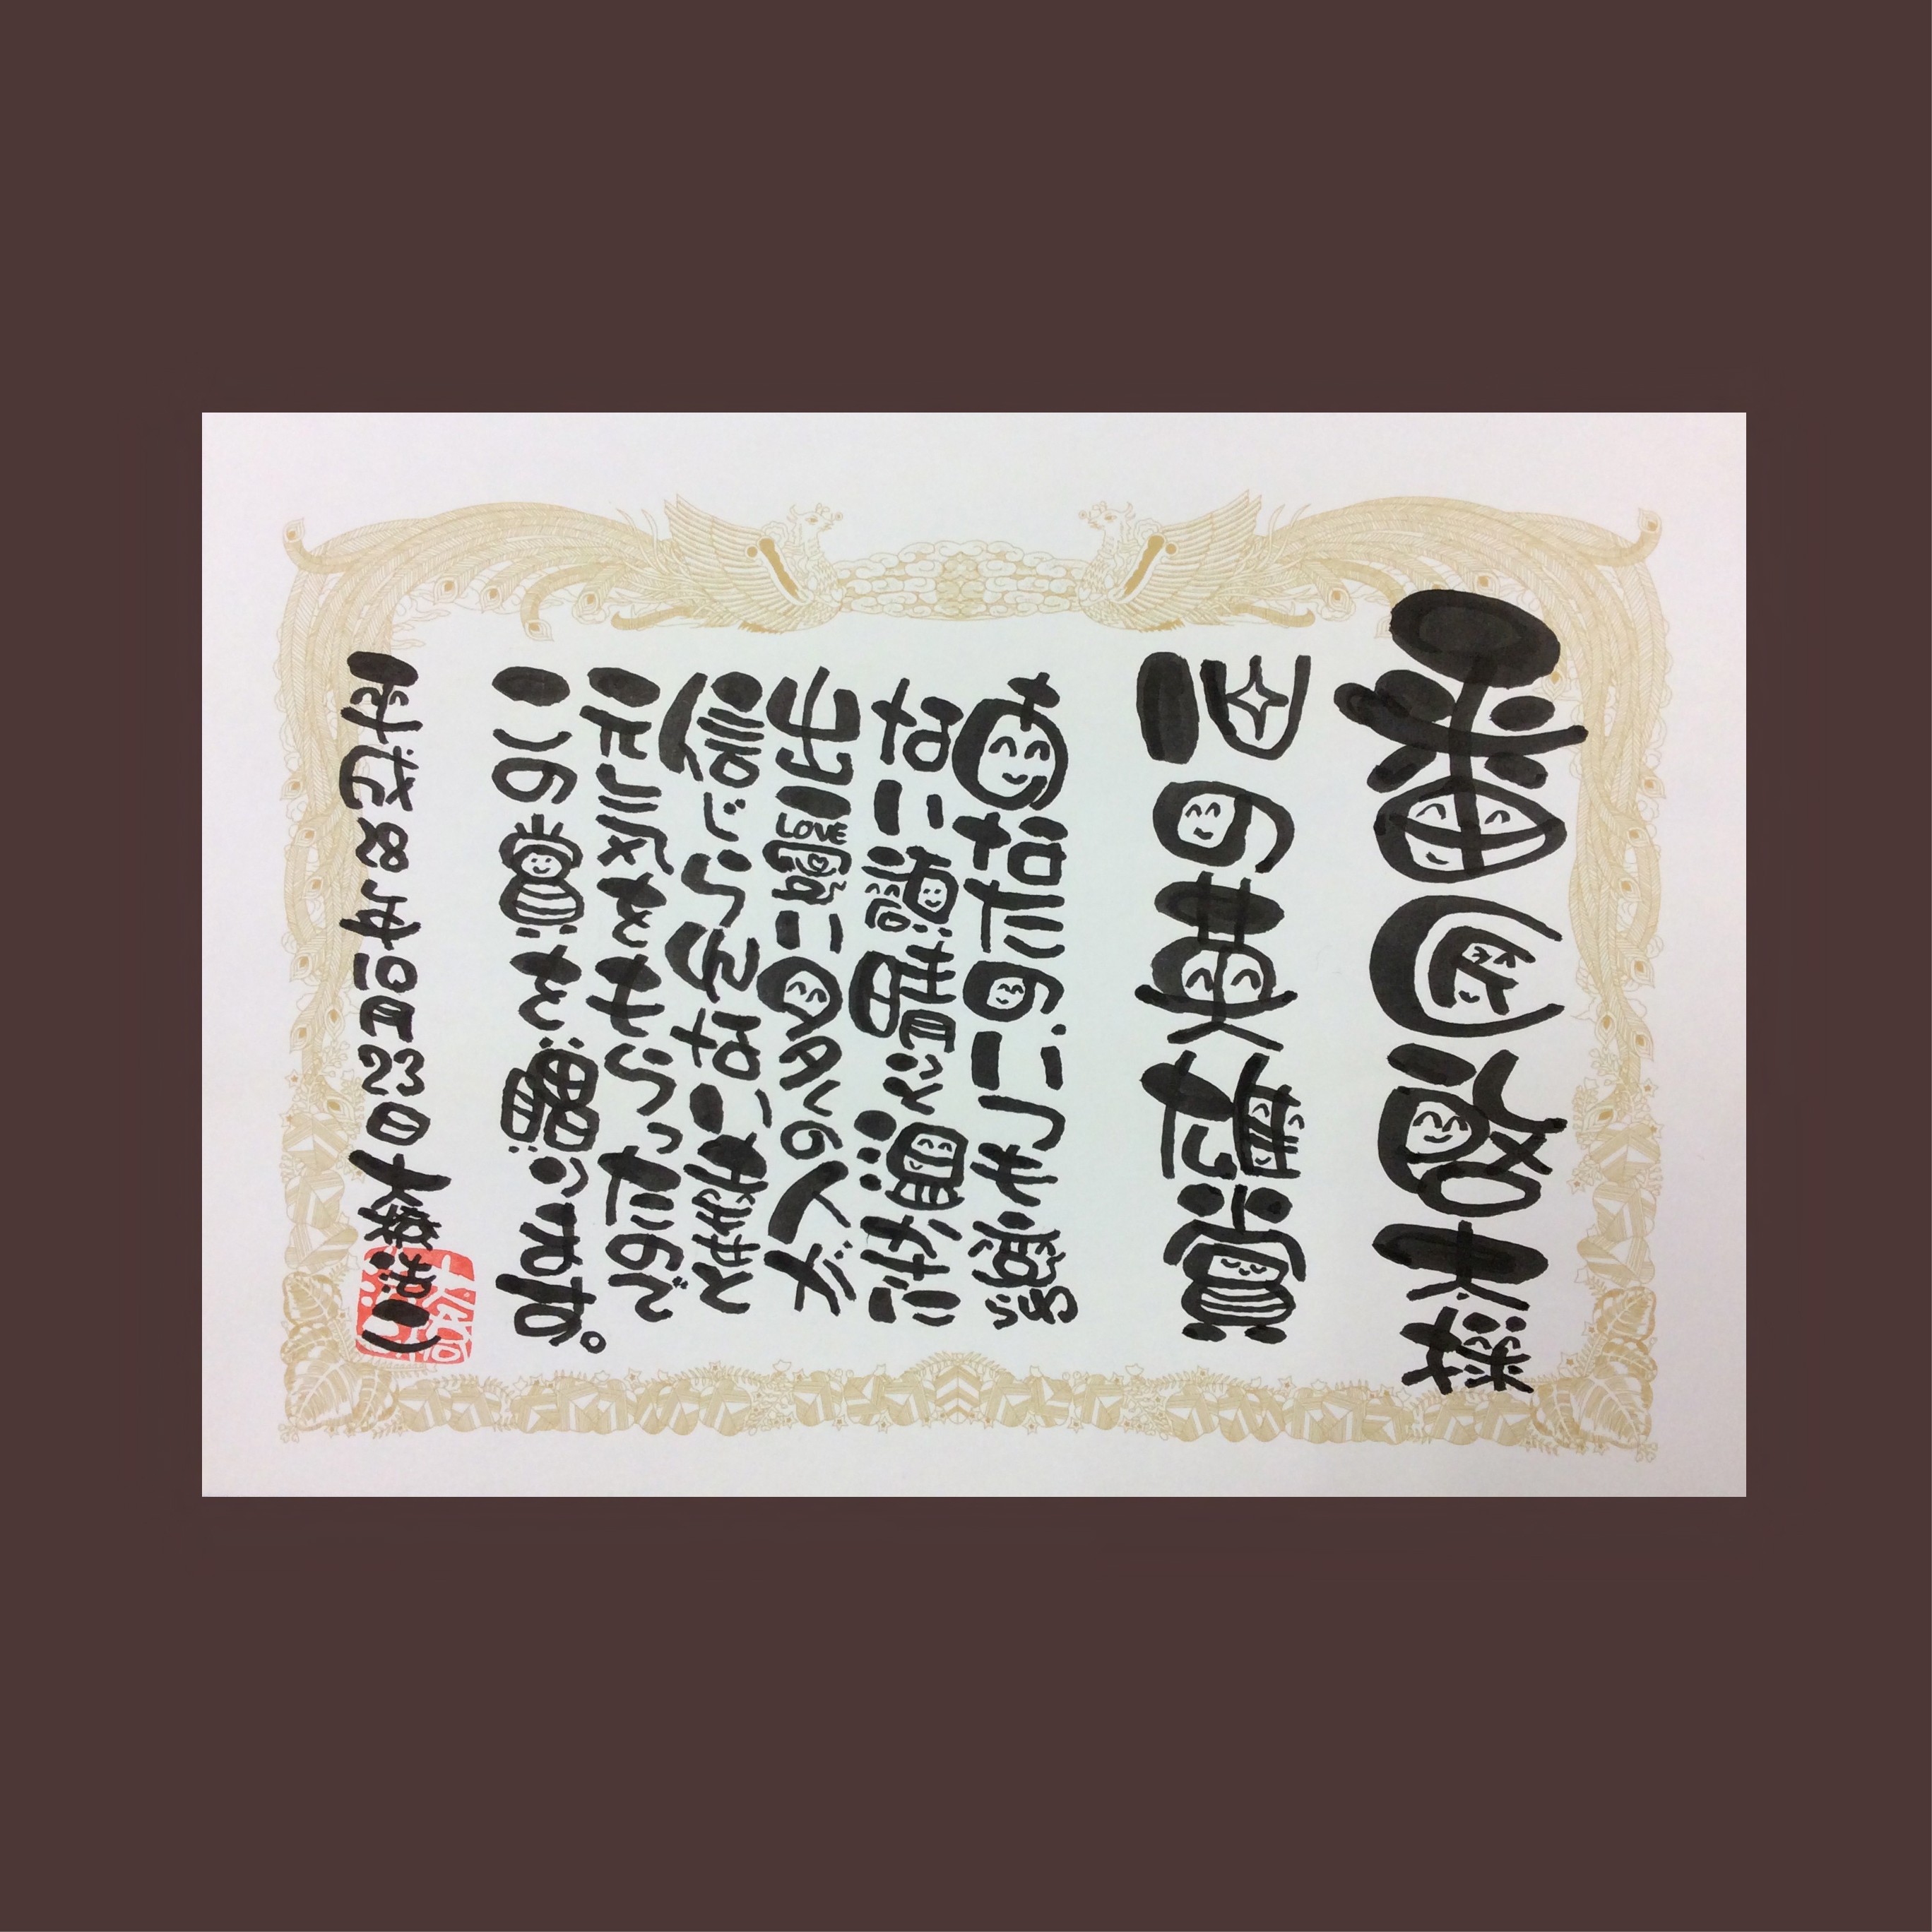 番匠啓様
の英雄賞
あなたのいつも変わら
ない顔晴りと温かさに
出愛い多くの人が
信じられない幸せと
元気をもらったので
この賞を贈ります。
平成28年10月23日 大浩二